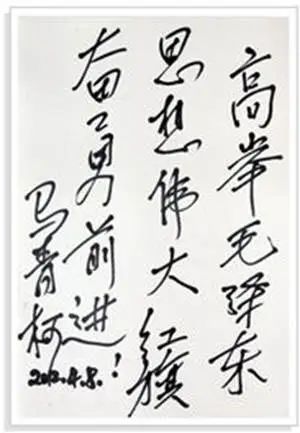 高举毛泽东
思想伟大红旗
奋勇前进！
马青柯
2012.4.8.